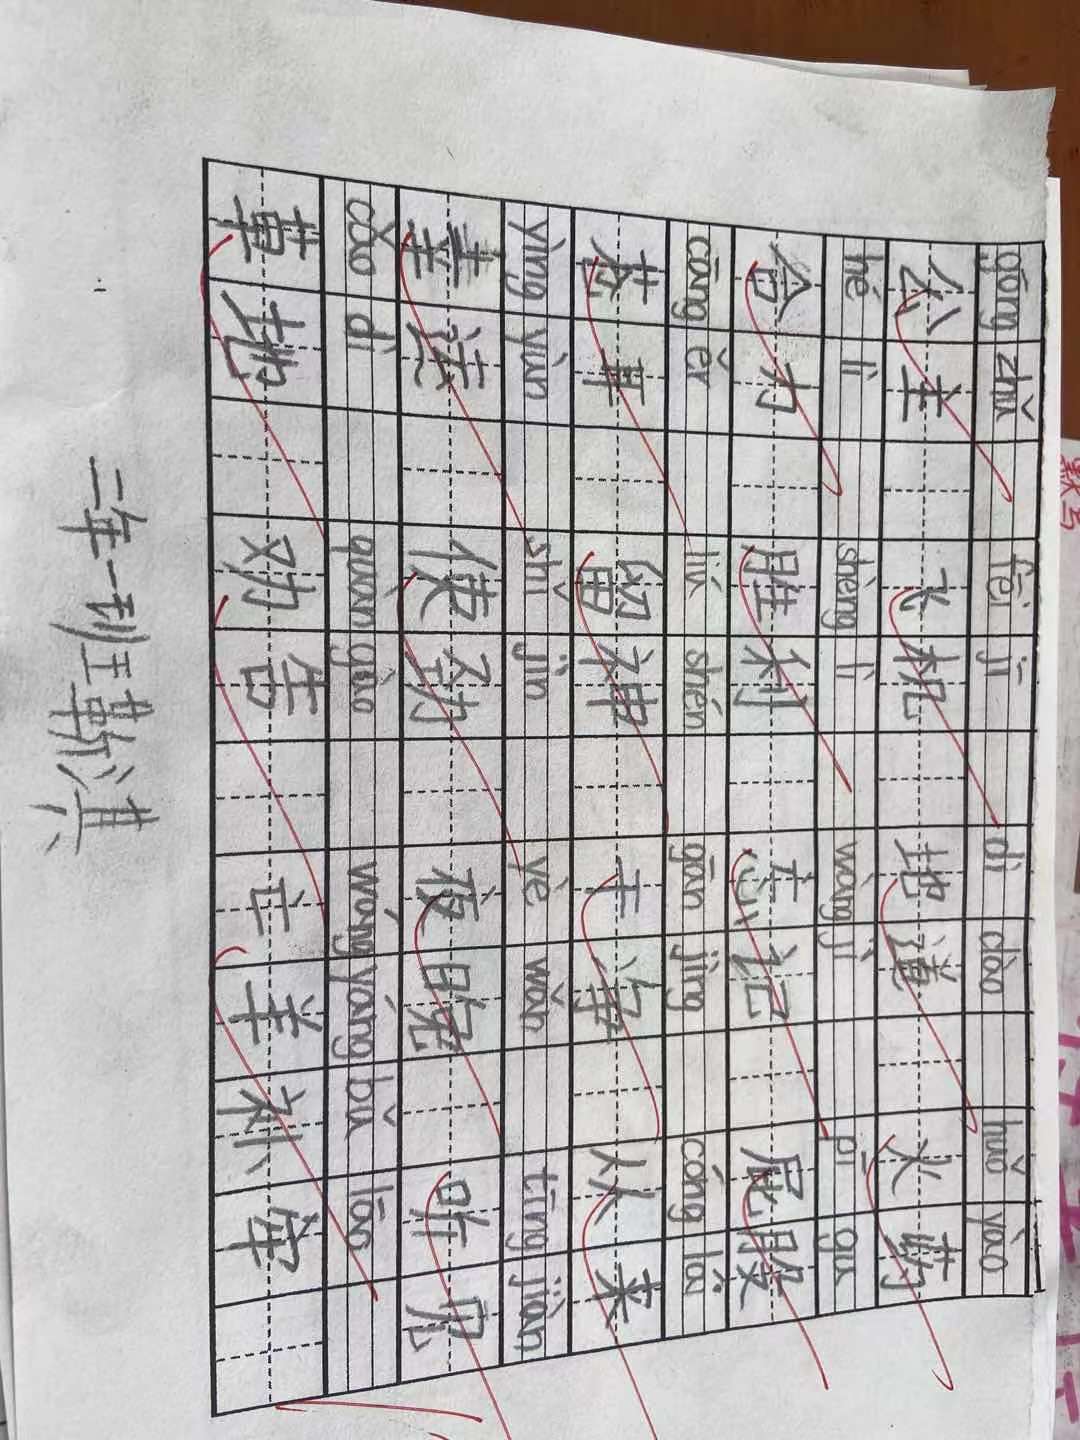 gōng zhǔ fēi jī dì dào huǒ yào
公主 飞机 地道 火药
hé lì shèng lì wàng jì pì gu
合力 胜利 忘记 屁股
cāng ěr liú shén gān jìng cóng lái
苍耳 留神 干净 从来
yìng yùn shǐ jìn yè wǎn tīng jiàn
幸运 使劲 夜晚 听见
cǎo dì quàn gào wáng yáng bǔ láo
草地 劝告 亡羊补牢
二年一班王靳淇